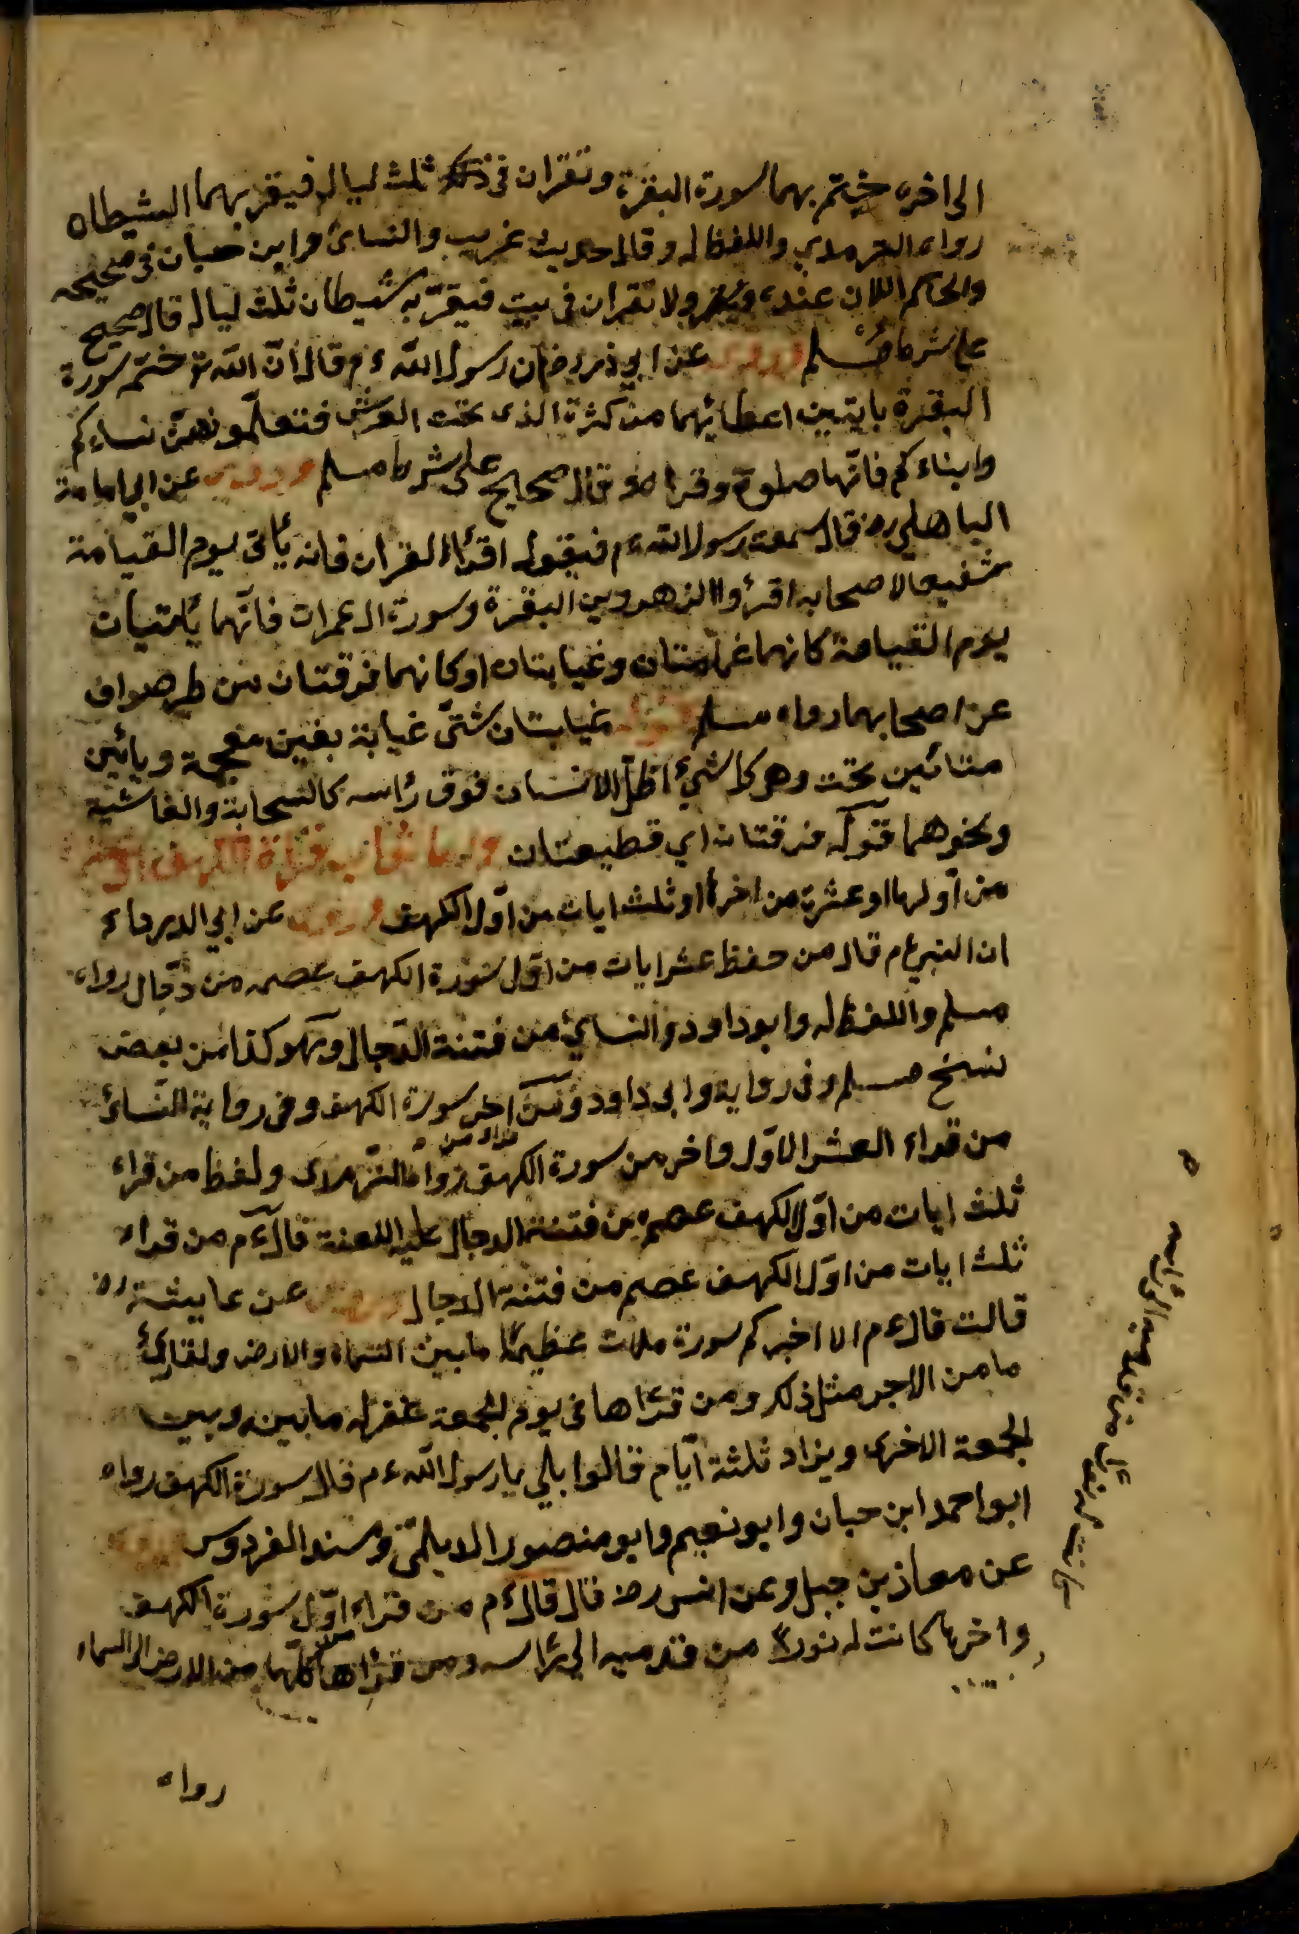 الى اخره ختم بهما سورة البقرة وتقرآن في ذلك ثلث ليال فيقر بهما الشيطان
رواه الترمدي واللفظ له وقال حديث غريب والنسائ وابن حبان فى صحيحه
والحاكم اللان عنده ولا تقران فى بيت فيقربه شيطان ثلث ليال قال صحيح
على شرط مسلم وروى عن ابي ذر رض ان رسول الله ءم قال انّ الله تع ختم سورة
البقرة بايتين اعطانيهما من كنزة الذى تحت العرش فتعلّموهنّ نساءكم
وابناءكم فانّها صلوة وقرا قال صحيح على شرط مسلم وروى عن ابي امامة
الباهلي رض قال سمعت رسول الله ءم فيقول اقرؤا القران فانه يأتى يوم القيامة
شفيعا لاصحابه اقرؤا الزهروين البقرة وسورة ال عمران فانّهما يأتيان
يوم القيامة كانهما غمامتان وغيابتان او كانهما فرقتان من طير صواف
عن اصحابهما رواه مسلم قوله غيابتان شتّى غيابة بغين معجمة ويائين
مثنائين تحت وهو كل شيء اظلّ الانسان فوق رأسه كالسحابة والغاشية
ونحوهما قوله فرقتان اي قطيعتان واما ثواب قراة الكهف او عشر
من اولها او عشرة من اخرها او ثلث ايات من اوّل الكهف وروى عن ابي الدرداء
ان النبي ءم قال من حفظ عشر ايات من اوّل سورة الكهف عصم من دجّال رواه
مسلم واللفظ له وابو داود والنسائي من فتنة الدّجال وهو كذا من بعض
نسخ مسلم وفى رواية وابى داود من اخر سورة الكهف وفى رواية النسائ
من قراء العشر الاوّل واخر من سورة الكهف رواه الترمدى ولفظ من قراء
ثلث ايات من اوّل الكهف عصم من فتنة الدجال عليه اللعنة قال ءم من قراء
ثلث ايات من اوّل الكهف عصم من فتنة الدجال وروى عن عايشة رض
قالت قال ءم الا اخبركم سورة ملات عظيمها ما بين السماء والارض ولقارئ
ها من الاجر مثل ذلك ومن قرأها فى يوم الجمعة غفر له ما بينه وبين
الجمعة الاخرى ويزاد ثلثة ايّام قالوا بلي يا رسول الله ءم قال سورة الكهف رواه
ابو احمد ابن حبان وابو نعيم وابو منصور الديلمى وسند الفردوس وروى
عن معاذ بن جبل وعن انس رض قال قال ءم من قراء اوّل سورة الكهف
واخرها كانت له نورا من قدميه الي رأسه ومن قرأها كلّها من الارض الى السماء
رواه